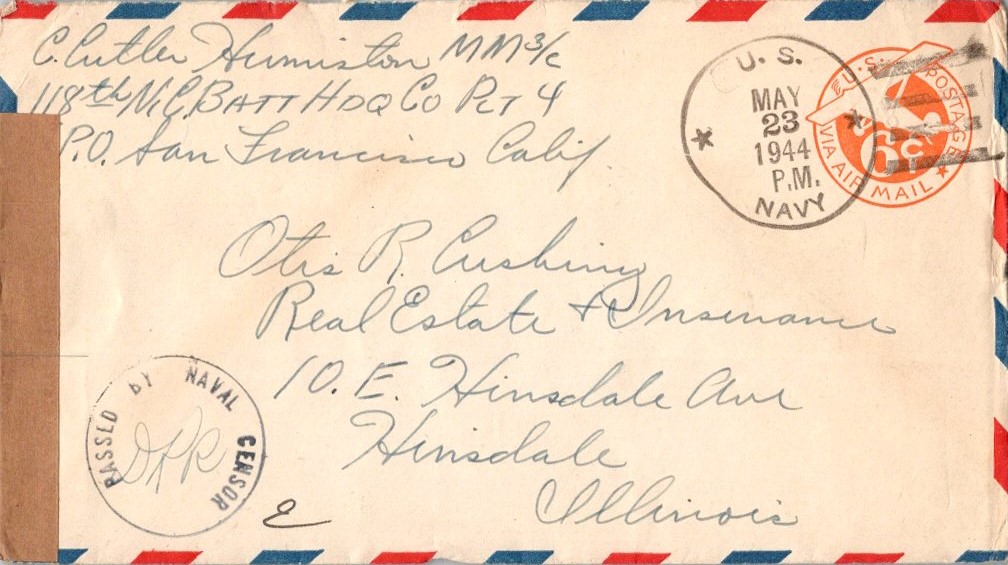 C. Cutler Humiston MM 3/c
118th N.C. BATT HDQ CO PLT 4
P.O. San Francisco Calif.
U. S.
MAY
23
1944
P.M.
NAVY
U.S. POSTAGE
6c
VIA AIR MAIL
Otis R. Cushing
Real Estate & Insurance
10. E. Hinsdale Ave
Hinsdale
Illinois
PASSED BY NAVAL CENSOR